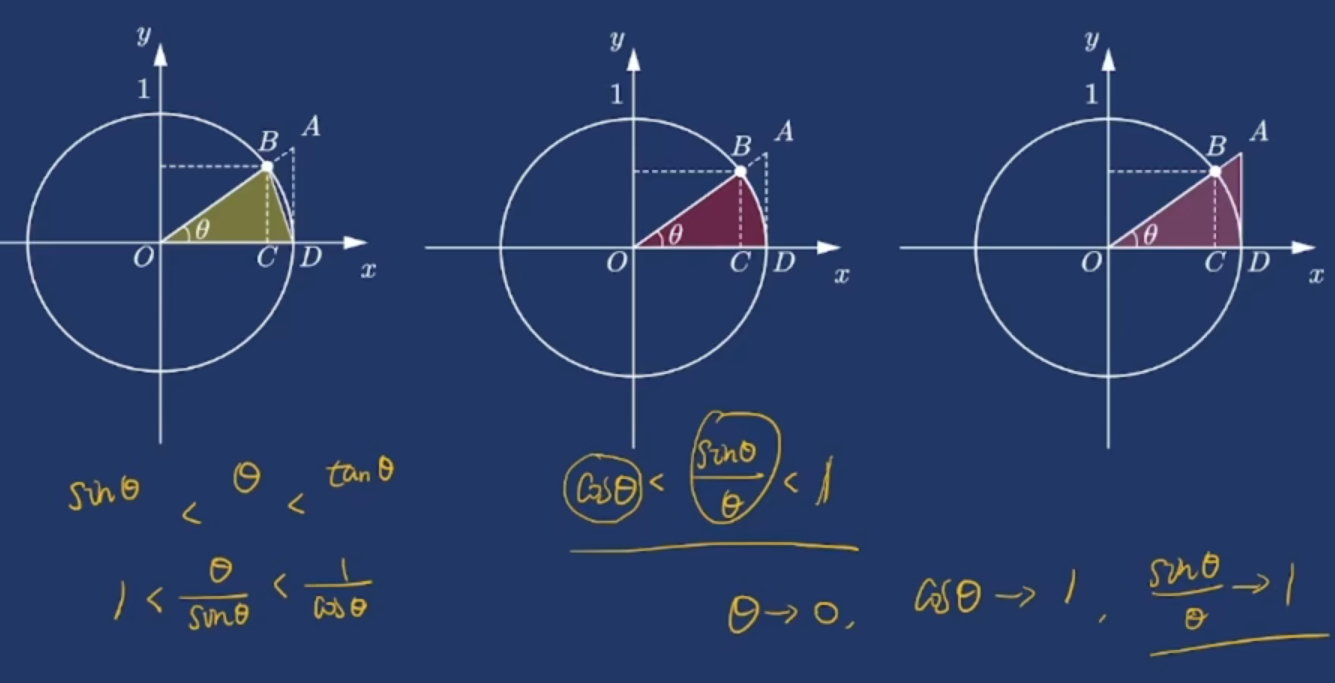 y
1
B
A
θ
O
C
D
x
y
1
B
A
θ
O
C
D
x
y
1
B
A
θ
O
C
D
x
sinθ < θ < tanθ
1 < θ/sinθ < 1/cosθ
cosθ < sinθ/θ < 1
θ → 0, cosθ → 1, sinθ/θ → 1